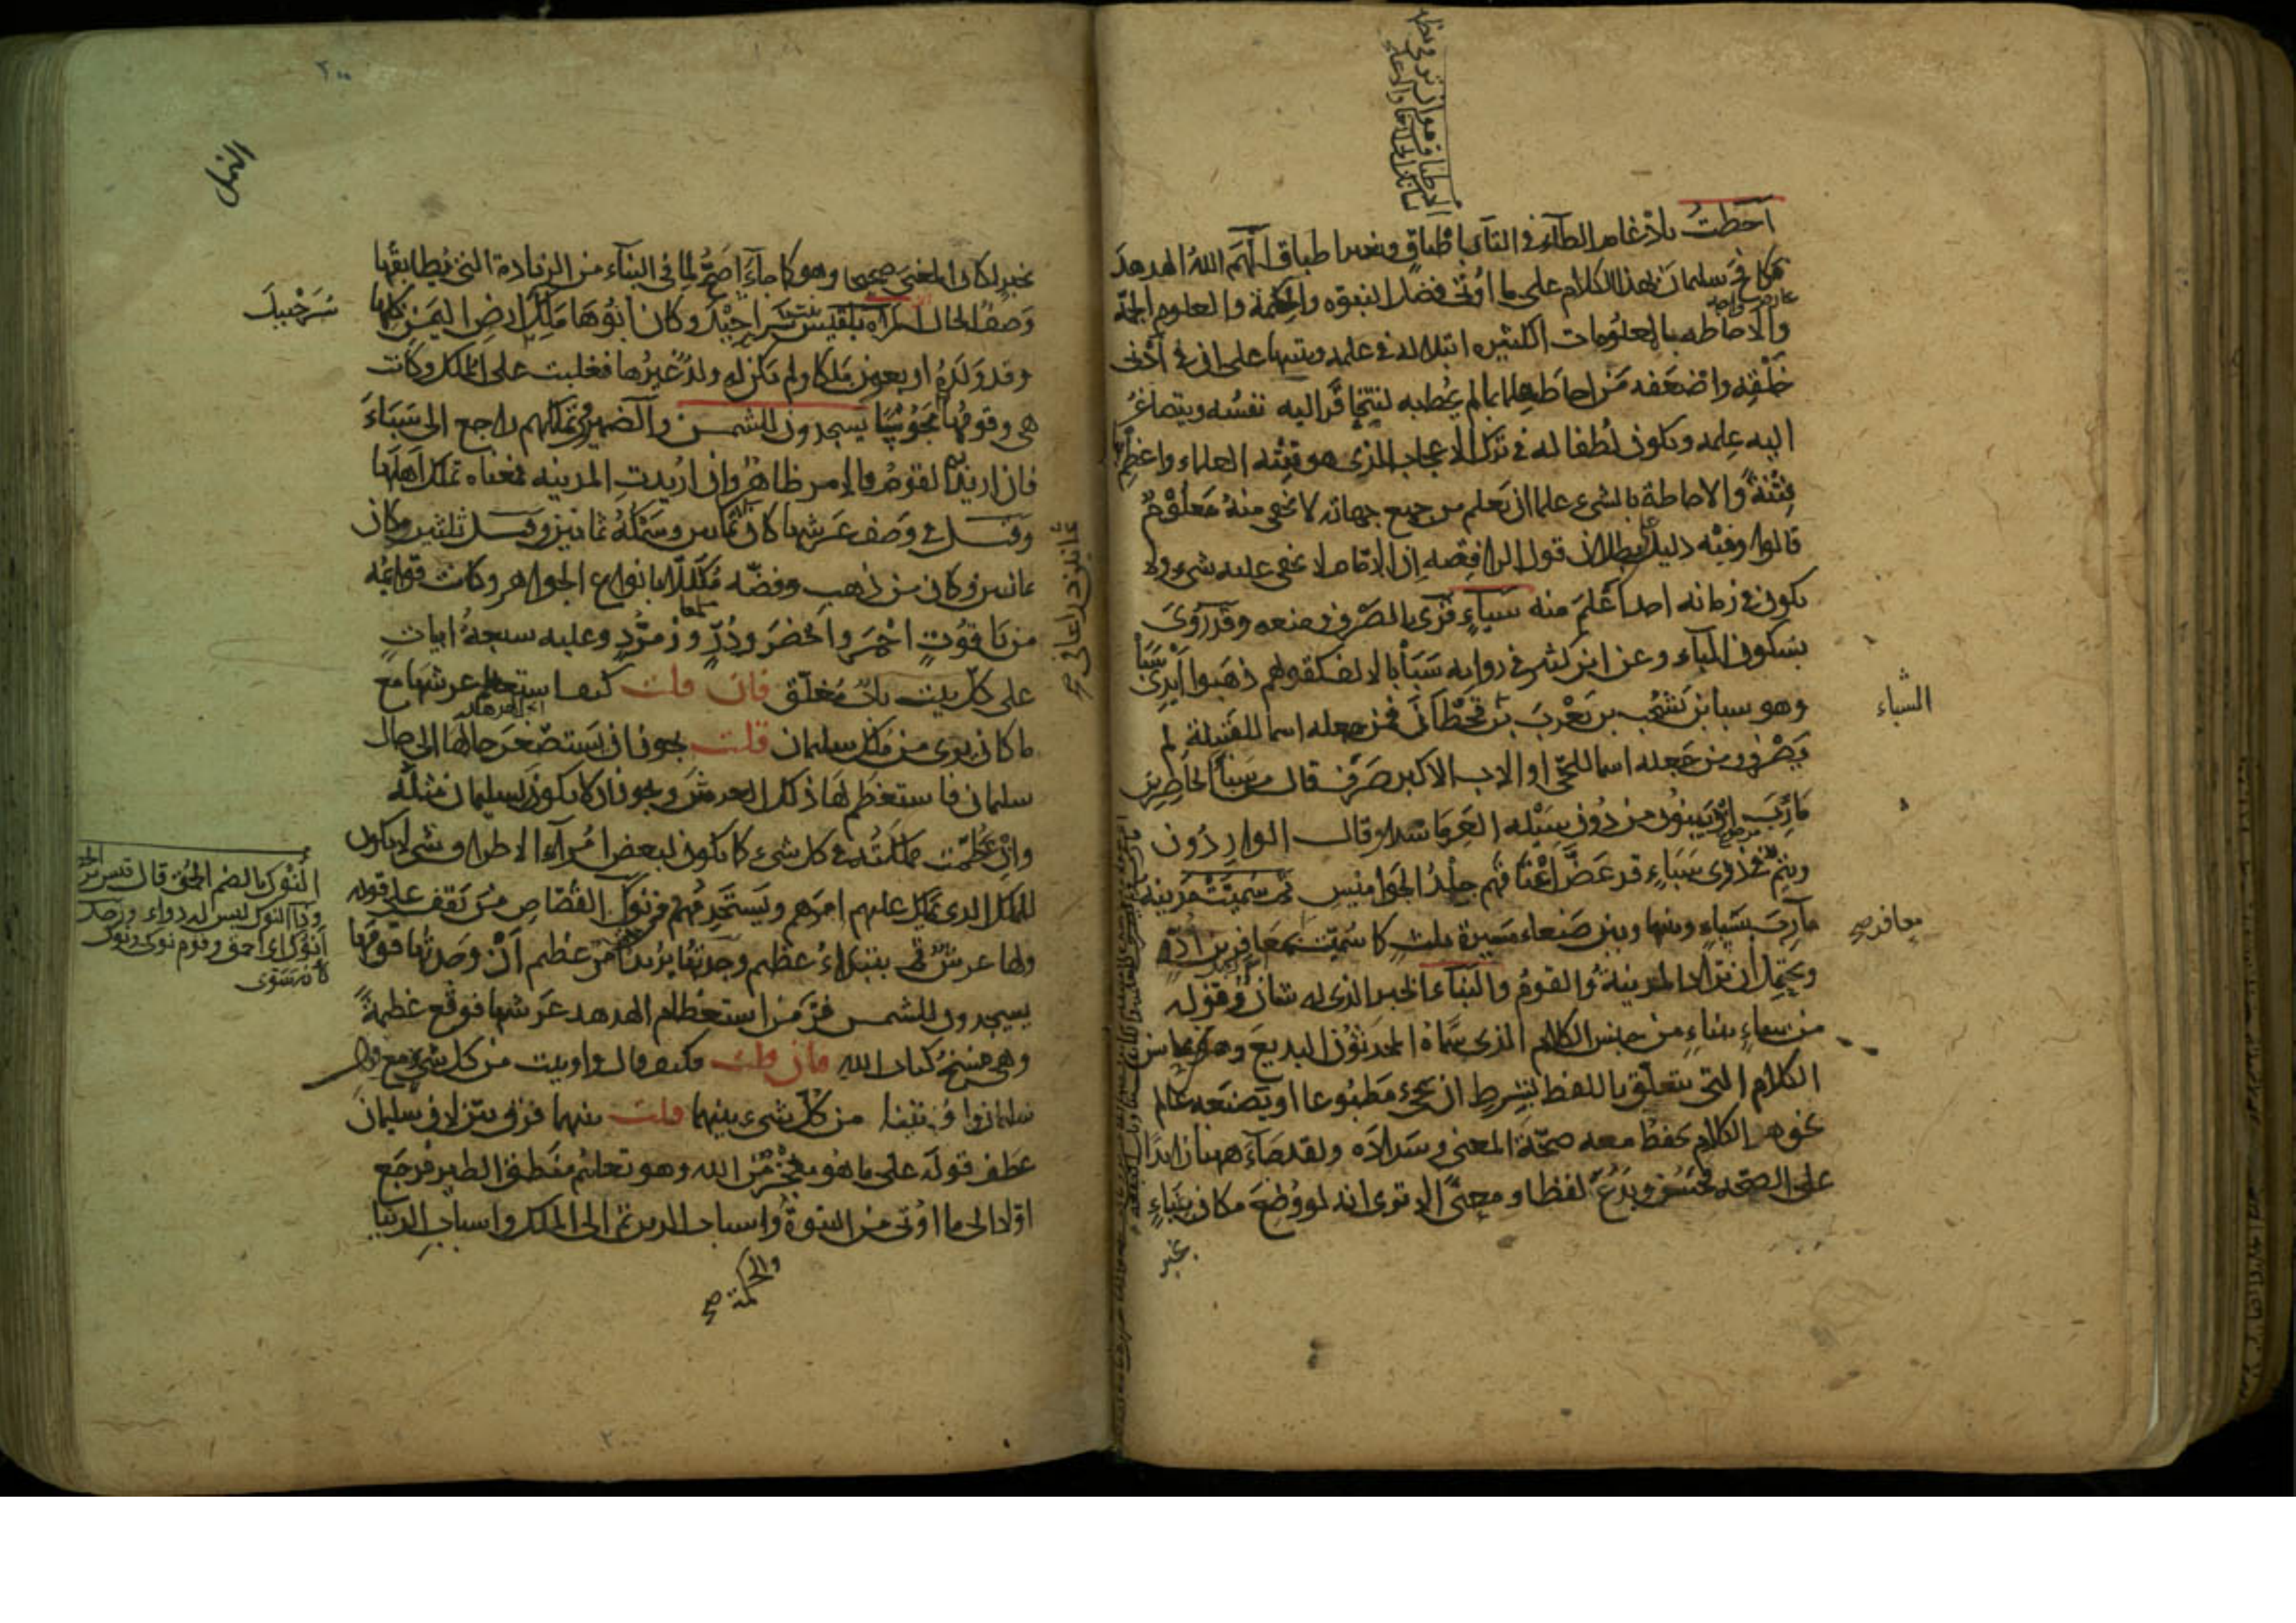 احطت بادغام الطاء في التاء باطباق وبغير اطباق الهم الله الهدهد
فكافح سليمان بهذا الكلام على ما اوتى من فضل النبوه والحكمة والعلوم الجمة
والاحاطه بالمعلومات الكثيره ابتلاء له في علمه وتنبيها على ان في ادنى
خلقه واضعفه من احاط علما بما لم يحط به لتتحاقر اليه نفسه ويتصاغر
اليه علمه ويكون لطفا له في ترك الاعجاب الذي هو فتنه العلماء واعظم بها
فتنة والاحاطة بالشيء علما ان يعلم من جميع جهاته لا يخفى منه معلوم
قالوا وفيه دليل على بطلان قول الرافضه ان الامام لا يخفى عليه شيء ولا
يكون في زمانه احد اعلم منه سباء قرئ بالصرف ومنعه وقد روى
بسكون الباء وعن ابن كثير في روايه سبا بالالف كقولهم ذهبوا ايدى سبا
وهو سبا بن يشجب بن يعرب بن قحطان فمن جعله اسما للقبيلة لم
يصرف ومن جعله اسما للحي او الاب الاكبر صرف قال من سبا الحاضرين
مارب اذ يبنون من دون سيله العرما وقال الواردون
وتيم في ذرى سباء قد عض اعناقهم جلد الجواميس ثم سميت مدينة
مارب بسباء وبينها وبين صنعاء مسيرة ثلث كما سميت بمعافر بن اد
ويحتمل ان يراد المدينة والقوم والنباء الخبر الذي له شان وقوله
من سباء بنباء من جنس الكلام الذي سماه المحدثون البديع وهو من محاسن
الكلام الذي يتعلق باللفظ بشرط ان يجيء مطبوعا او يصنعه عالم
بجوهر الكلام يحفظ معه صحة المعنى وسداده ولقد جاء ههنا زايدا
على الصحة فحسن وبدع لفظا ومعنى الا ترى انه لو وضع مكان بنباء
بخبر
السباء
معافر صح
النمل
بخبر لكان المعنى صحيحا وهو كما جاء اصح لما في النباء من الزيادة التي يطابقها
وصف الحال المراه بلقيس بنت شراحيل وكان ابوها ملك ارض اليمن كلها
وقد ولده اربعون ملكا ولم يكن له ولد غيرها فغلبت على الملك وكانت
هي وقومها مجوسا يسجدون للشمس والضمير في تملكهم راجع الى سباء
فان اريد به القوم فالامر ظاهر وان اريدت المدينه فمعناه تملك اهلها
وقيل في وصف عرشها كان ثمانين وسمكه ثمانين وقيل ثلثين وكان
ثمانين وكان من ذهب وفضه مكللا بانواع الجواهر وكانت قوائمه
من ياقوت احمر واخضر ودر وزمرد وعليه سبعة ابيات
على كل بيت باب مغلق فان قلت كيف استعظم عرشها مع
ما كان يرى من ملك سليمان قلت يجوز ان يستصغر حالها الى حال
سليمان فاستعظم لها ذلك العرش ويجوز ان لا يكون لسليمان مثله
وان عظمت مملكته في كل شيء كما يكون لبعض امراء الاطراف شيء لا يكون
للملك الذي يملك عليهم امرهم ويستخدمهم ومن نوكى القصاص من يقف على قوله
ولها عرش ثم يبتدئ عظيم وجدتها يريد امر عظيم ان وجدتها وقومها
يسجدون للشمس فر من استعظام الهدهد عرشها فوقع في عظيمة
وهي مسخ كتاب الله فان قلت فكيف قال واوتيت من كل شيء مع قول
سليمان واوتينا من كل شيء بينهما قلت بينهما فرق بين لان سليمان
عطف قوله على ما هو معجزة من الله وهو تعليم منطق الطير فرجع
اولا الى ما اوتي من النبوة والحكمة واسباب الدين ثم الى الملك واسباب الدنيا
والحكمة صح
شرحبيل
ثمانين ذراعا في صح
النوك بالضم الحمق قال قيس بن
وداء النوك ليس له دواء ورجل
انوك اى احمق وقوم نوكى ونوك